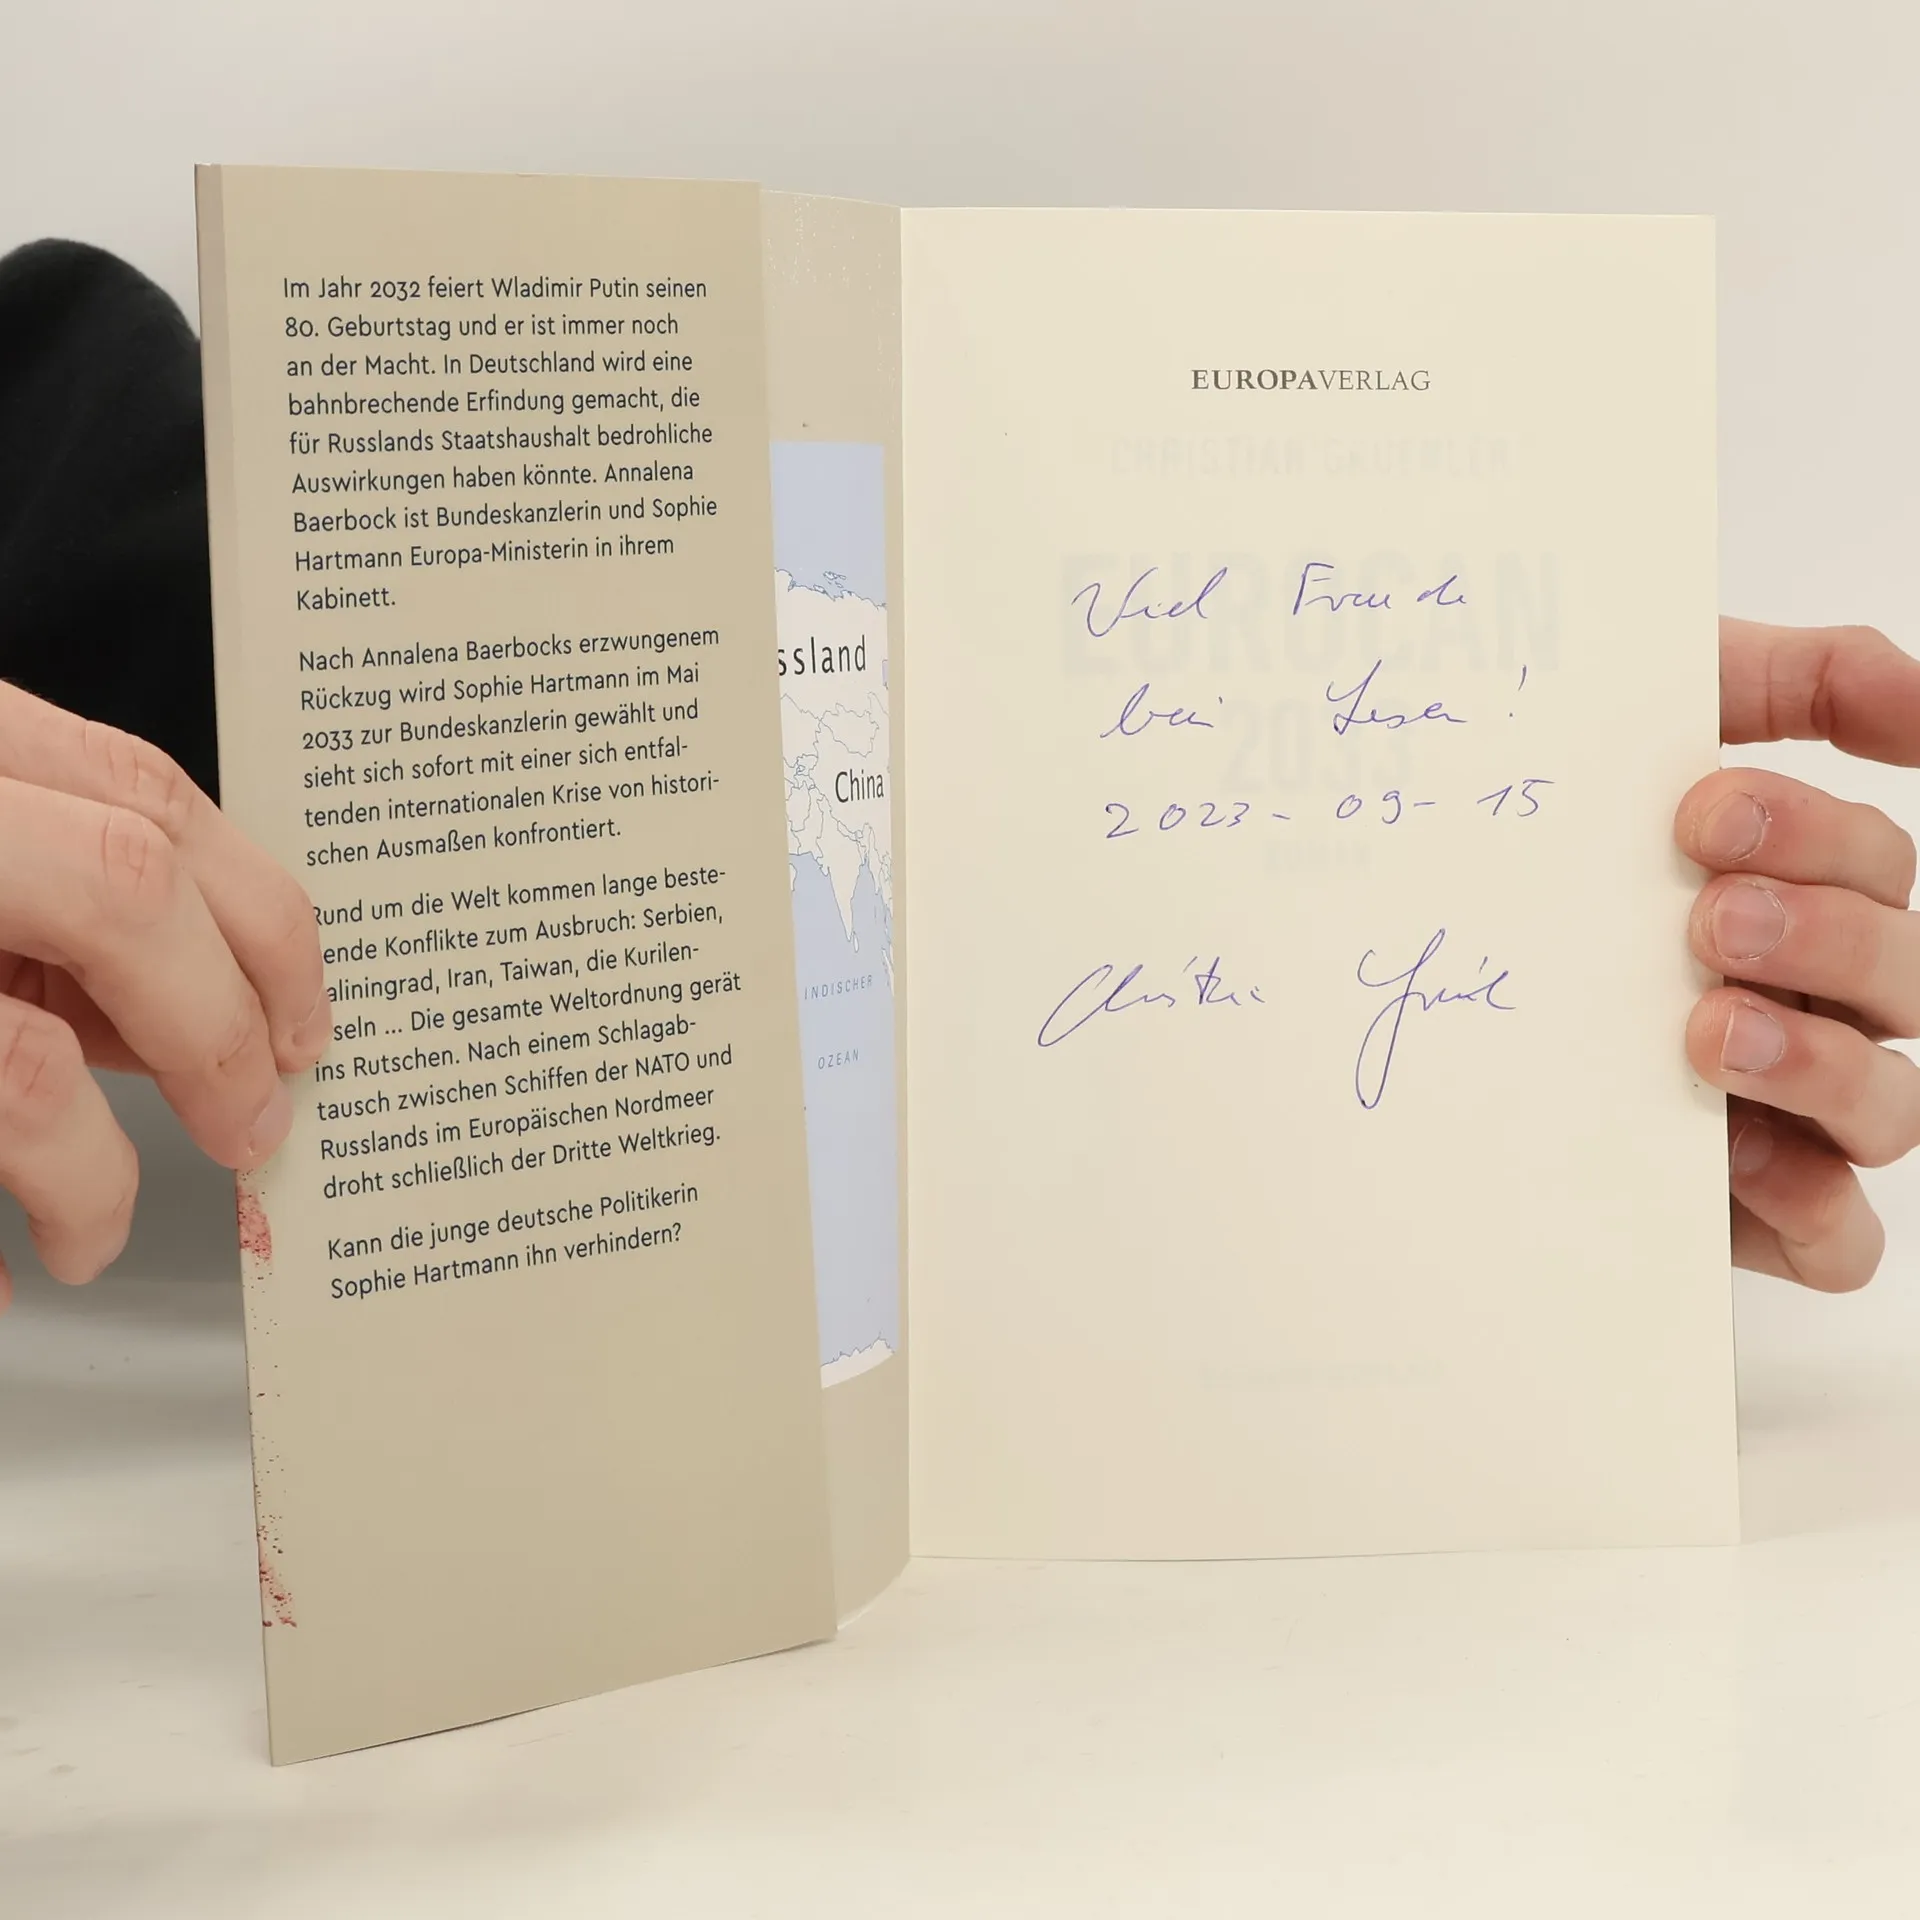 Im Jahr 2032 feiert Wladimir Putin seinen
80. Geburtstag und er ist immer noch
an der Macht. In Deutschland wird eine
bahnbrechende Erfindung gemacht, die
für Russlands Staatshaushalt bedrohliche
Auswirkungen haben könnte. Annalena
Baerbock ist Bundeskanzlerin und Sophie
Hartmann Europa-Ministerin in ihrem
Kabinett.
Nach Annalena Baerbocks erzwungenem
Rückzug wird Sophie Hartmann im Mai
2033 zur Bundeskanzlerin gewählt und
sieht sich sofort mit einer sich entfal-
tenden internationalen Krise von histori-
schen Ausmaßen konfrontiert.
Rund um die Welt kommen lange beste-
ende Konflikte zum Ausbruch: Serbien,
aliningrad, Iran, Taiwan, die Kurilen-
seln ... Die gesamte Weltordnung gerät
ins Rutschen. Nach einem Schlagab-
tausch zwischen Schiffen der NATO und
Russlands im Europäischen Nordmeer
droht schließlich der Dritte Weltkrieg.
Kann die junge deutsche Politikerin
Sophie Hartmann ihn verhindern?
ssland
China
INDISCHER
OZEAN
EUROPAVERLAG
EUROCAN
2033
Viel Freude
beim Lesen!
2023-09-15
Christian